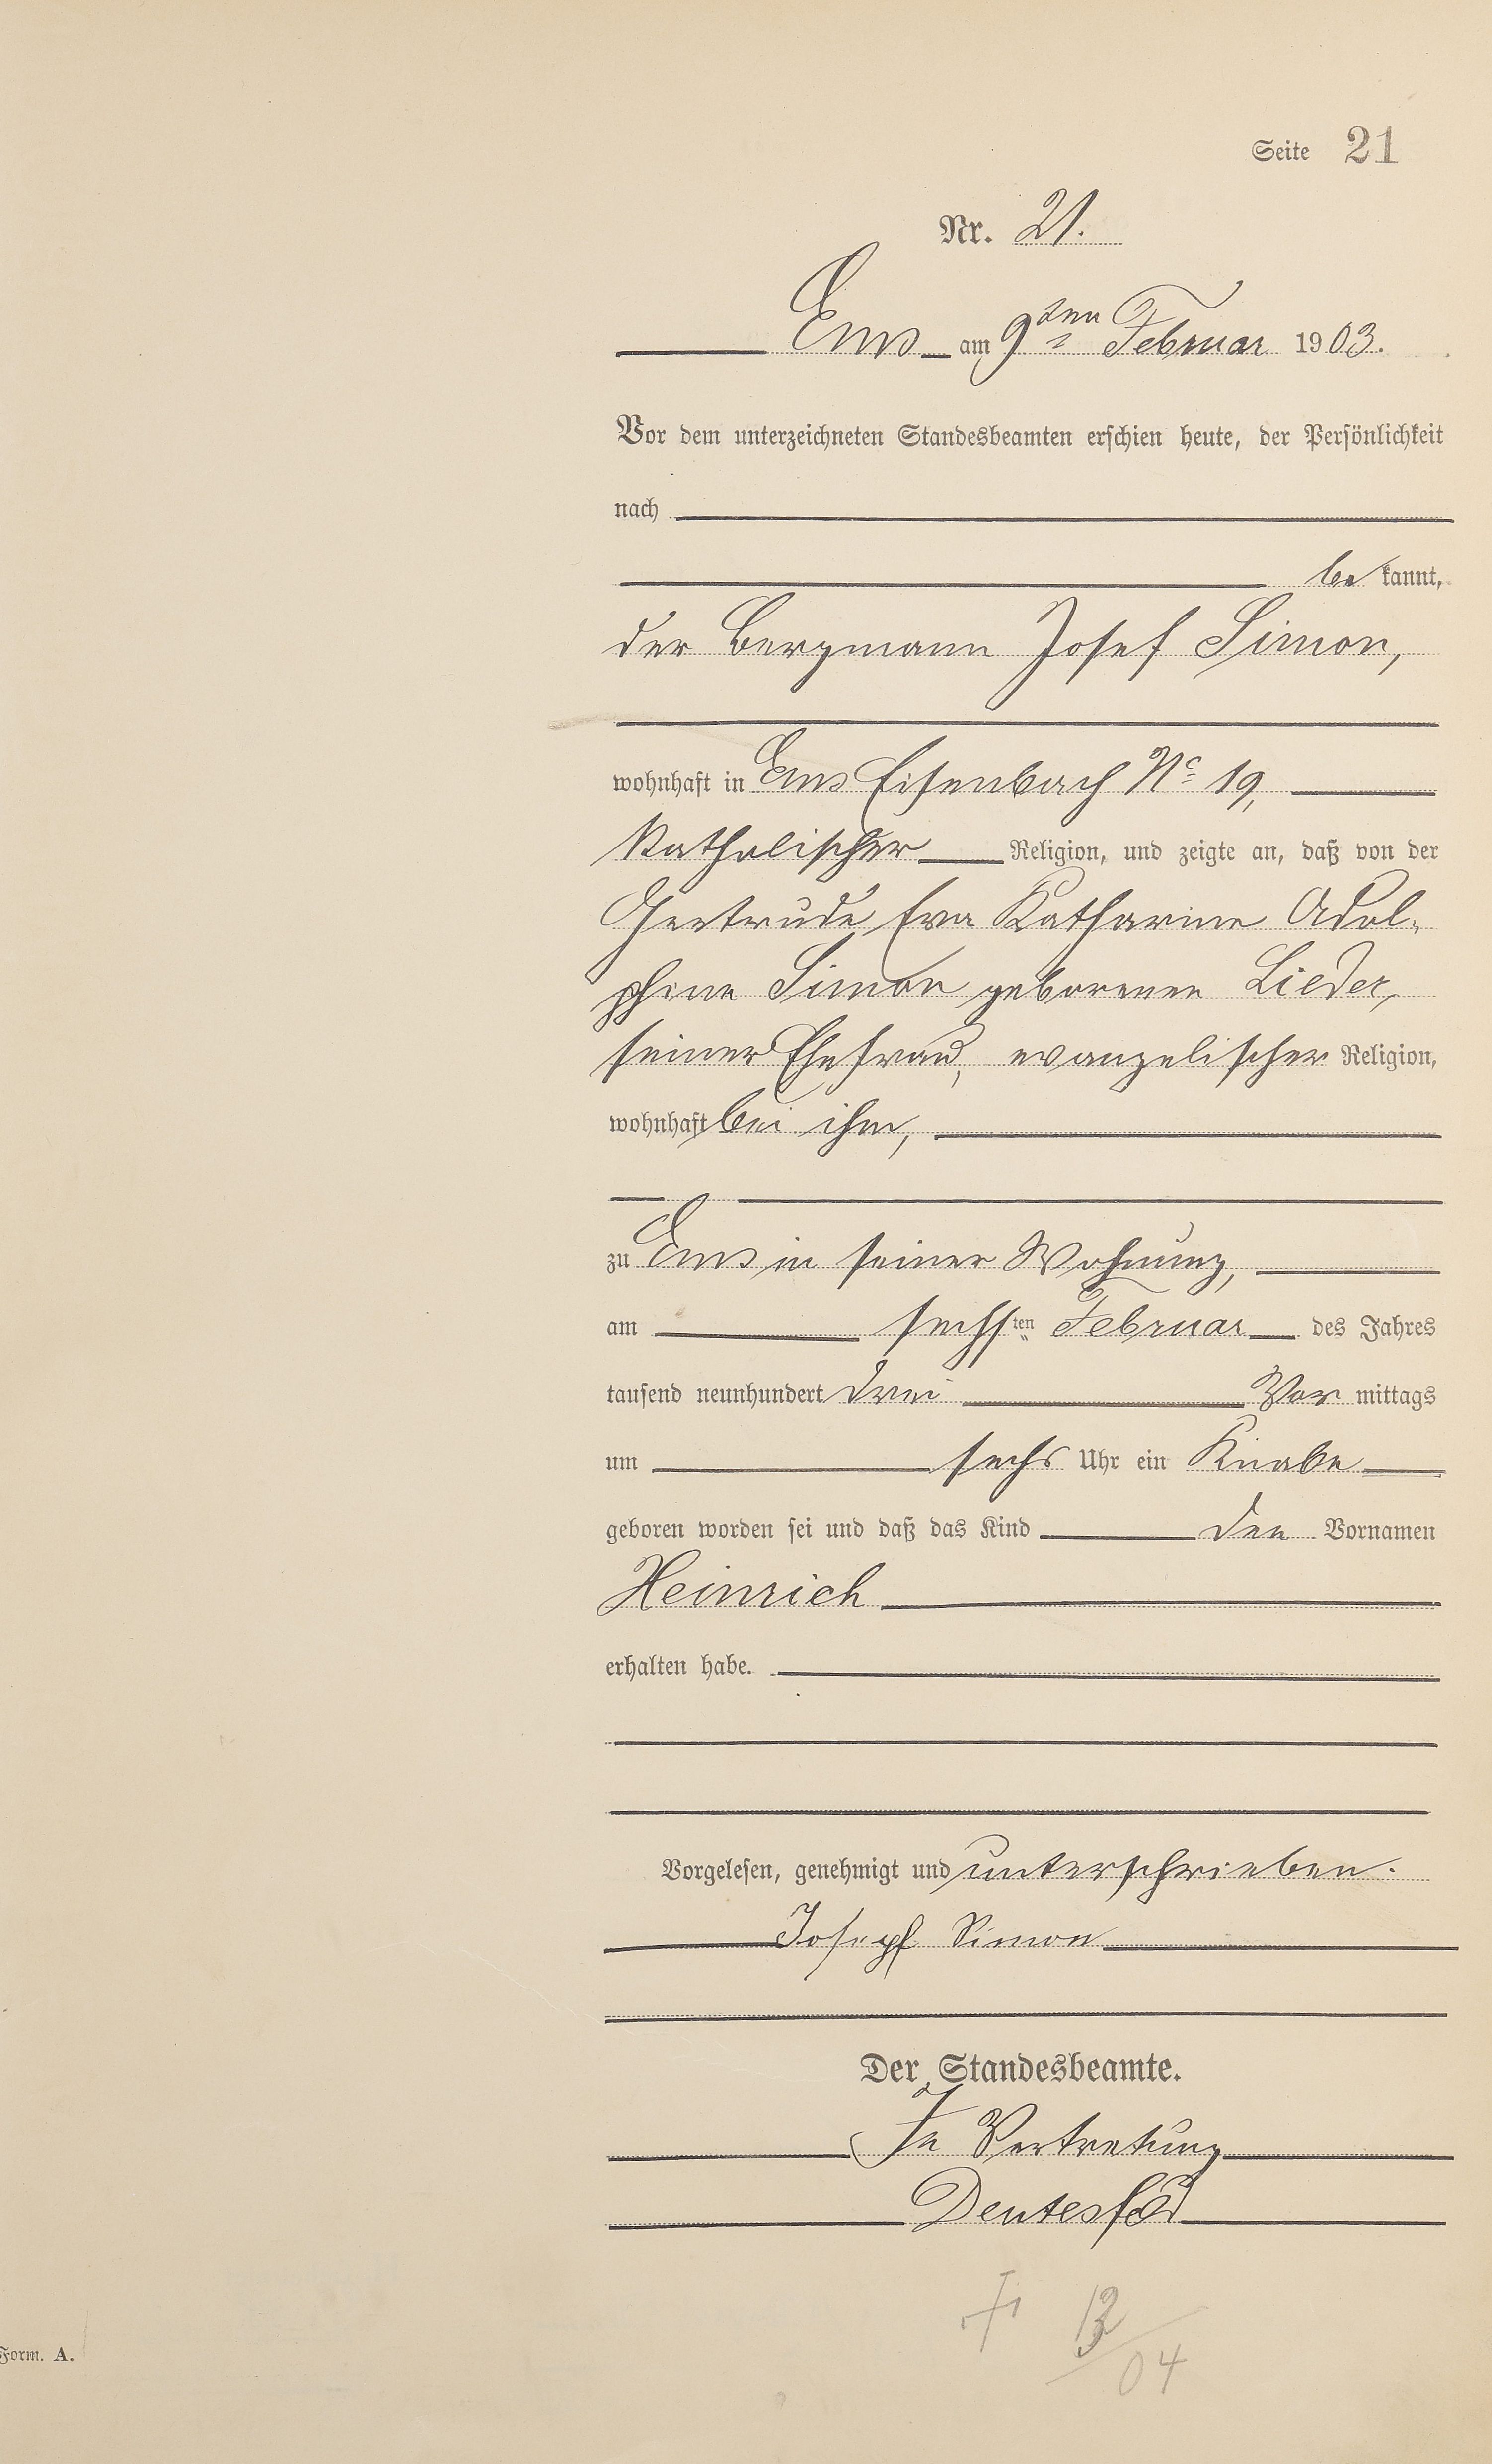 Seite 21
Nr. 21.
Ems am 9ten Februar 1903.
Vor dem unterzeichneten Standesbeamten erschien heute, der Persönlichkeit
nach
be kannt,
der Bergmann Josef Simon,
wohnhaft in Ems Eisenbach No 19,
katholischer Religion, und zeigte an, daß von der
Gertrude Eva Katharine Adol-
phine Simon geborenen Lieder,
seiner Ehefrau, evangelischer Religion,
wohnhaft bei ihm,
zu Ems in seiner Wohnung,
am sechsten Februar des Jahres
tausend neunhundert drei Vor mittags
um sechs Uhr ein Knabe
geboren worden sei und daß das Kind den Vornamen
Heinrich
erhalten habe.
Vorgelesen, genehmigt und unterschrieben.
Joseph Simon
Der Standesbeamte.
In Vertretung
† 13
04
Form. A.